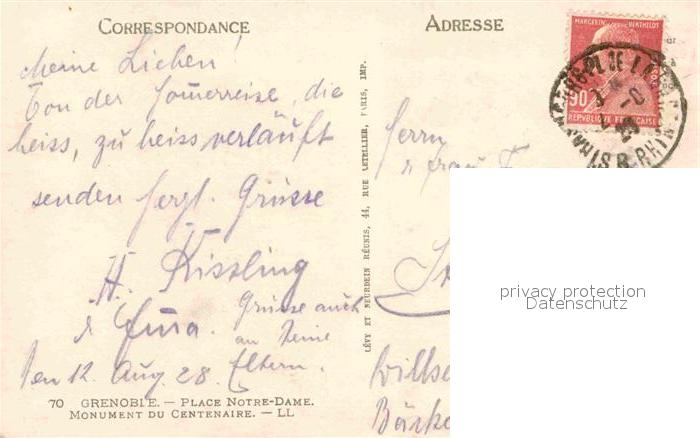 CORRESPONDANCE
ADRESSE
Meine Lieben!
Von der Sommerreise, die
heiss, zu heiss verläuft
senden herzl. Grüsse
H. Kissling
& Erna.
Grüsse auch
an Deine
Eltern.
den 12. Aug. 28.
70 GRENOBLE. — PLACE NOTRE-DAME.
MONUMENT DU CENTENAIRE. — LL
LÉVY ET NEURDEIN RÉUNIS, 44, RUE LETELLIER, PARIS, IMP.
MARCELIN BERTHELOT
90
RÉPUBLIQUE FRANÇAISE
Herrn
& Frau
privacy protection
Datenschutz